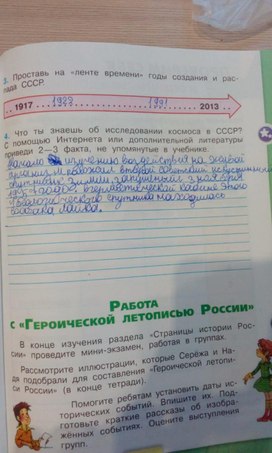 3. Проставь на «ленте времени» годы создания и рас-
пада СССР.
1922 1991
1917 2013
4. Что ты знаешь об исследовании космоса в СССР?
С помощью Интернета или дополнительной литературы
приведи 2—3 факта, не упомянутые в учебнике.
Начало изучению воздействия на живой
организм положил второй советский искусственный
спутник Земли, запущенный 3 ноября
1957 года. В герметической кабине этого
биологического спутника находилась
собака Лайка.
РАБОТА
С «ГЕРОИЧЕСКОЙ ЛЕТОПИСЬЮ РОССИИ»
В конце изучения раздела «Страницы истории Рос-
сии» проведите мини-экзамен, работая в группах.
Рассмотрите иллюстрации, которые Серёжа и На-
дя подобрали для составления «Героической летопи-
си России» (в конце тетради).
Помогите ребятам установить даты ис-
торических событий. Впишите их. Под-
готовьте краткие рассказы об изобра-
жённых событиях. Оцените выступления
групп.